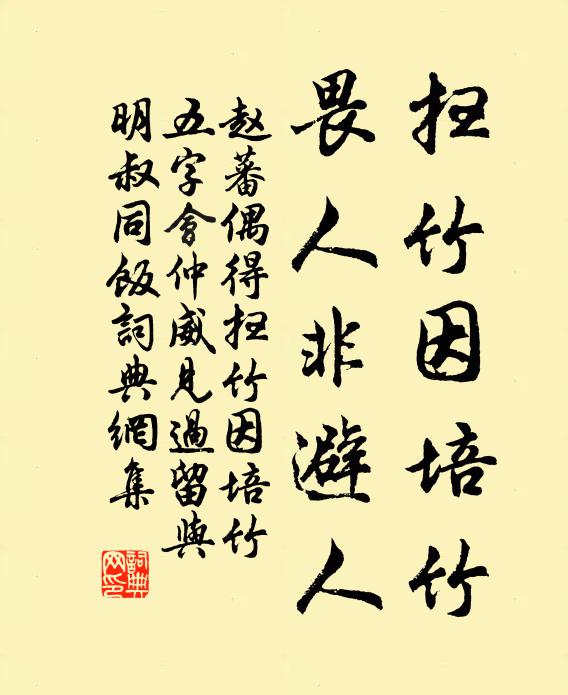 扫竹因培竹
畏人非避人
赵蕃偶得扫竹因培竹
五字会仲威見過留與
明叔同飯詞典網集
詞典
网印